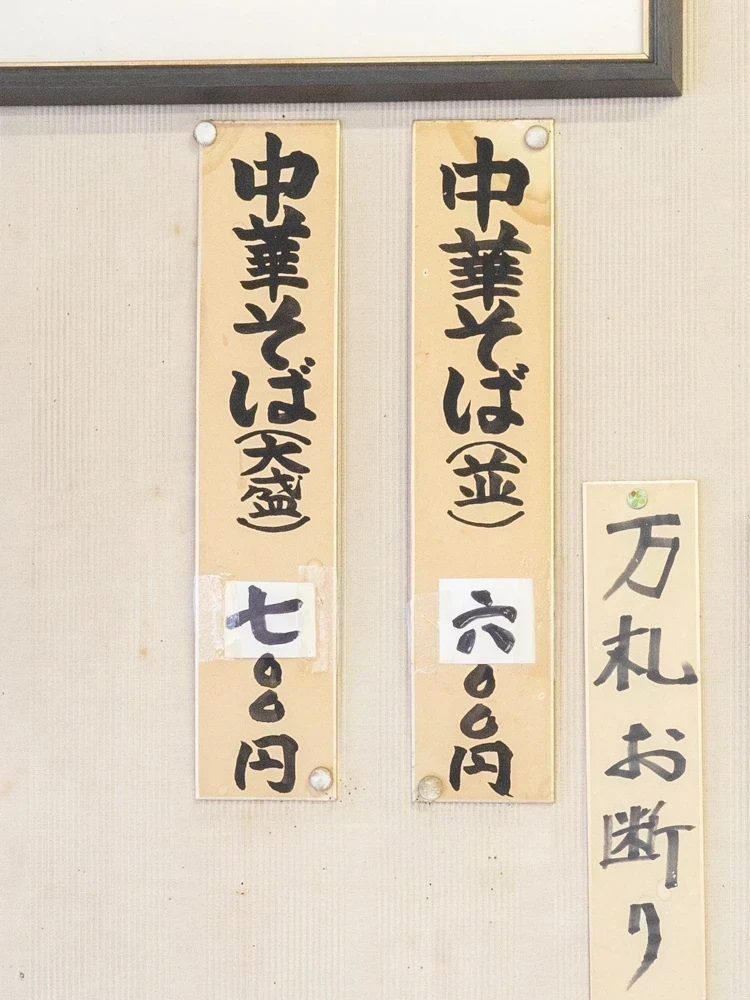 万札お断り
中華そば(並) 六〇〇円
中華そば(大盛) 七〇〇円